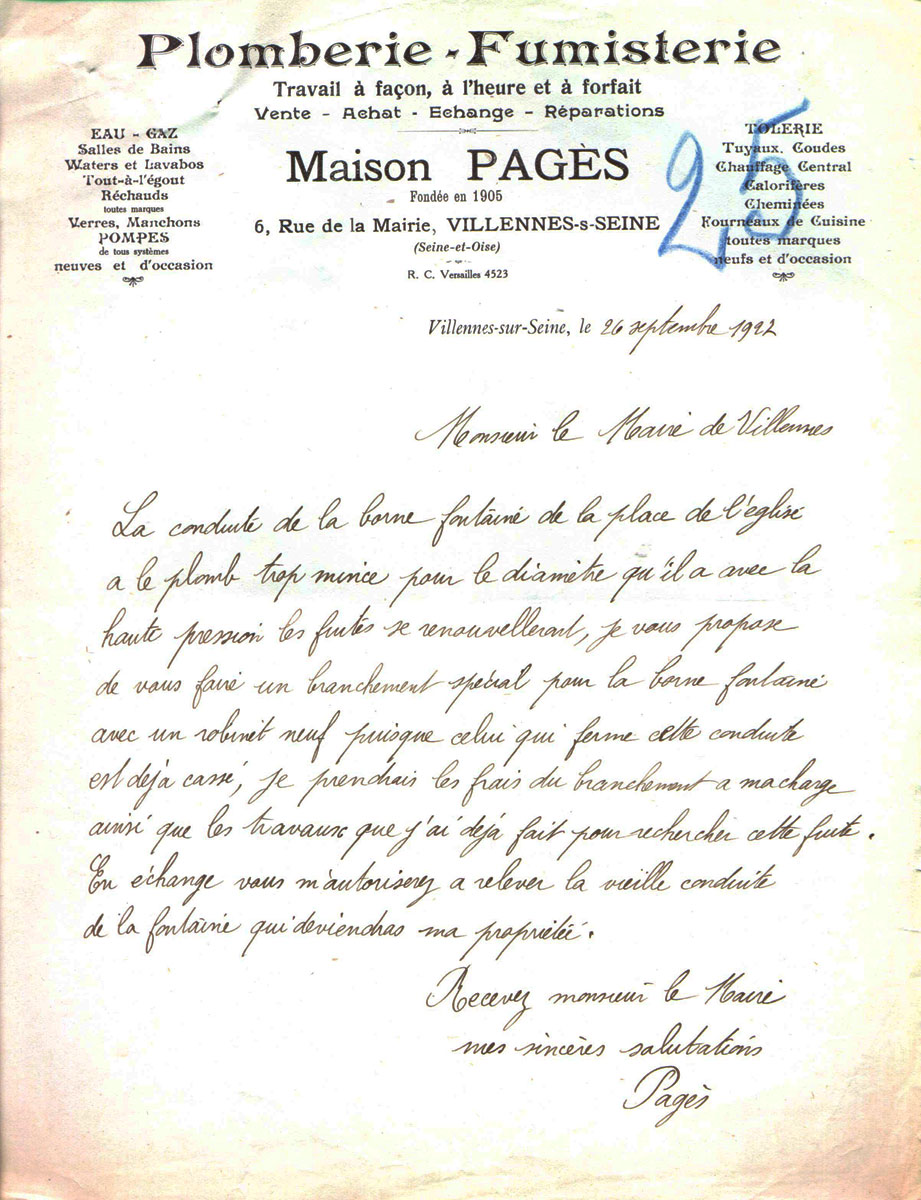 Plomberie - Fumisterie
Travail à façon, à l'heure et à forfait
Vente - Achat - Echange - Réparations
EAU - GAZ
Salles de Bains
Waters et Lavabos
Tout-à-l'égout
Réchauds
toutes marques
Verres, Manchons
POMPES
de tous systèmes
neuves et d'occasion
Maison PAGÈS
Fondée en 1905
6, Rue de la Mairie, VILLENNES-s-SEINE
(Seine-et-Oise)
R. C. Versailles 4523
25
TOLERIE
Tuyaux. Coudes
Chauffage Central
Calorifères
Cheminées
Fourneaux de Cuisine
toutes marques
neufs et d'occasion
Villennes-sur-Seine, le 26 septembre 1922
Monsieur le Maire de Villennes
La conduite de la borne fontaine de la place de l'église
a le plomb trop mince pour le diamètre qu'il a avec la
haute pression les fuites se renouvelleront, je vous propose
de vous faire un branchement spécial pour la borne fontaine
avec un robinet neuf puisque celui qui ferme cette conduite
est déja cassé, je prendrais les frais du branchement a ma charge
ainsi que les travaux que j'ai déjà fait pour rechercher cette fuite.
En échange vous m'autoriserez a relever la vieille conduite
de la fontaine qui deviendras ma propriétée.
Recevez monsieur le Maire
mes sincères salutations
Pagès